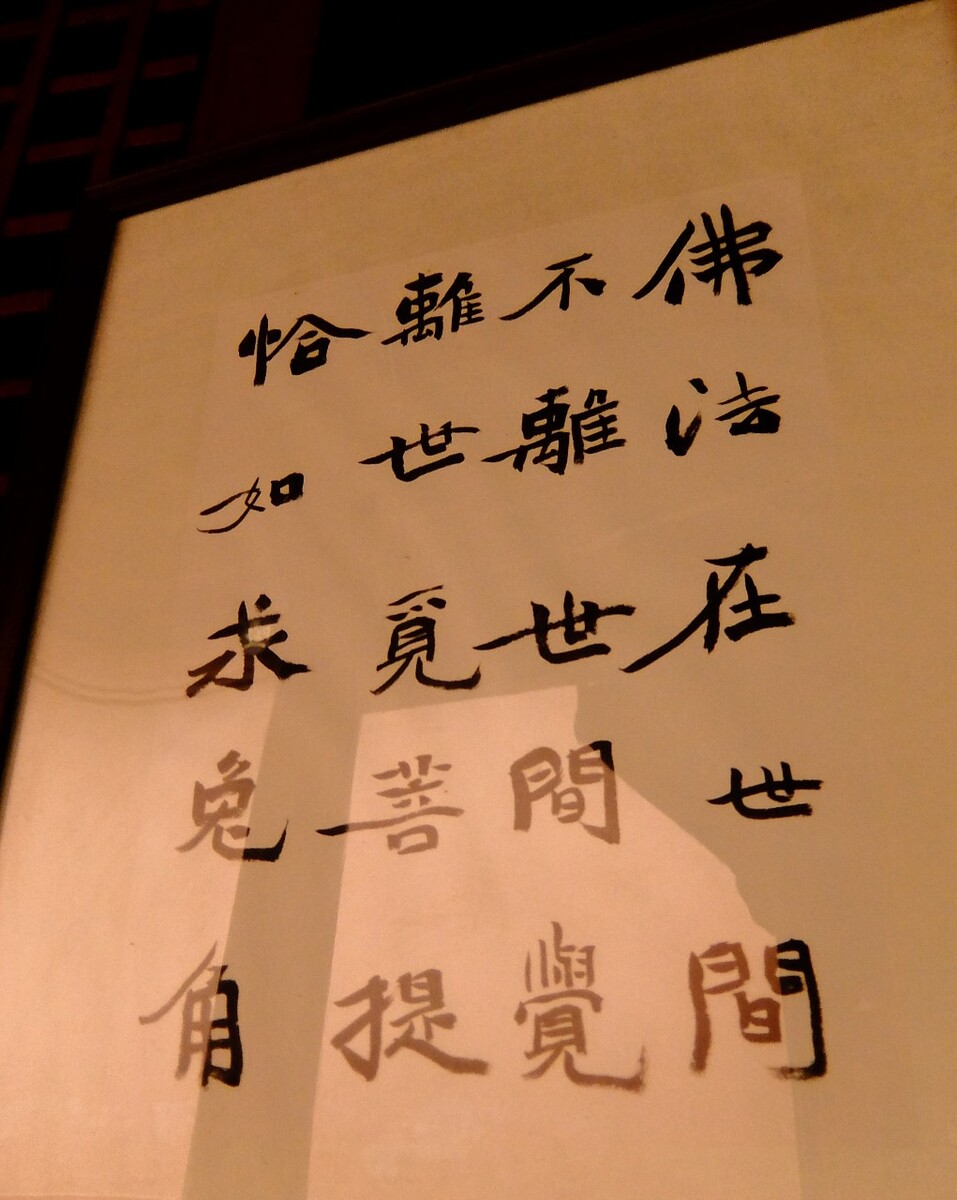 佛法在世間
不離世間覺
離世覓菩提
恰如求兔角